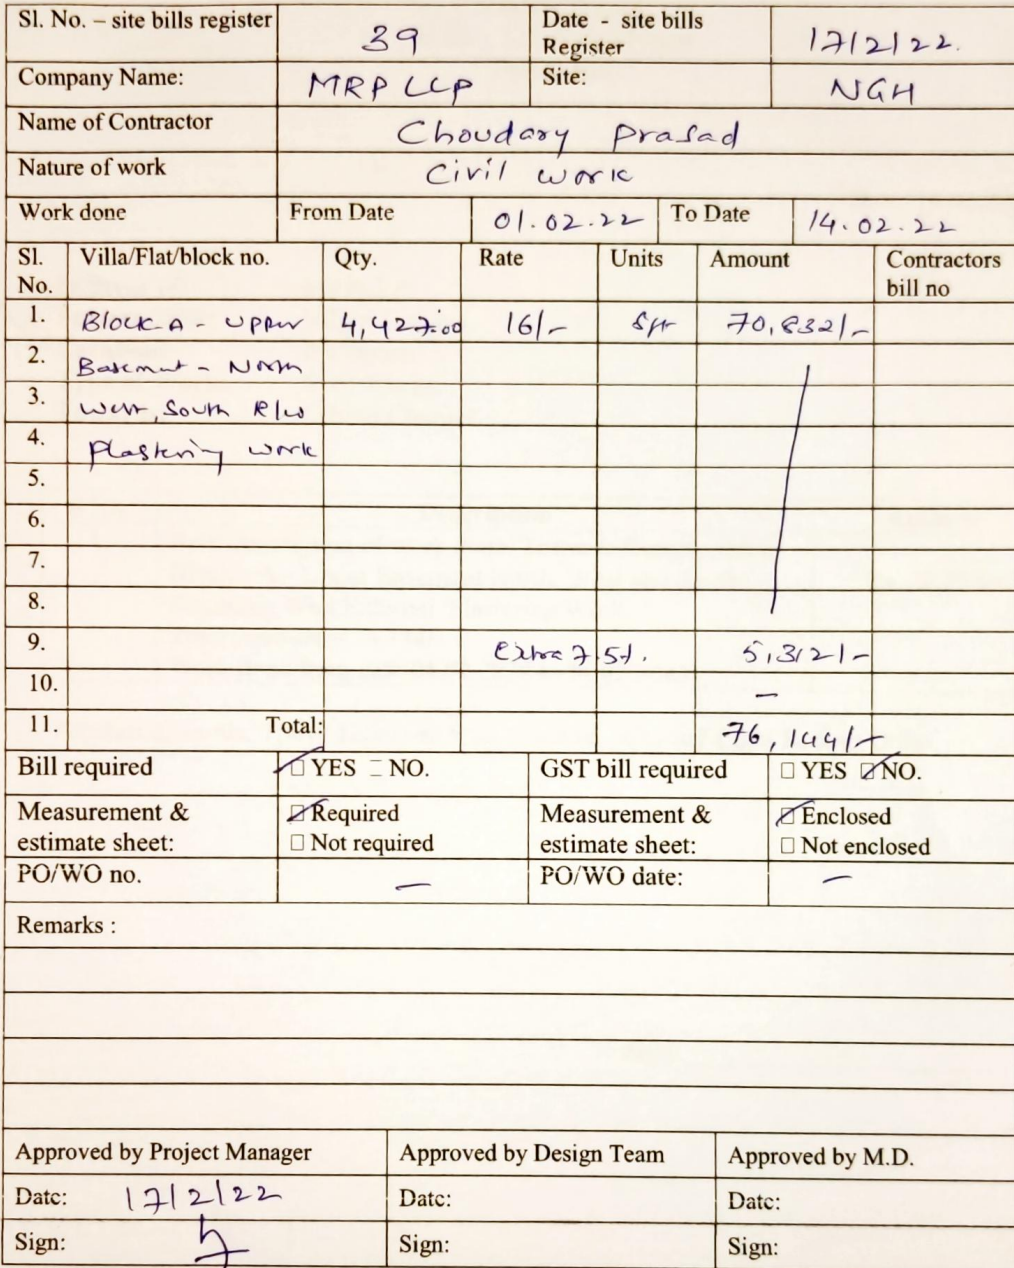 Sl. No. – site bills register 39 Date - site bills Register 17/2/22.
Company Name: MRP LLP Site: NGH
Name of Contractor Choudary Prasad
Nature of work Civil work
Work done From Date 01.02.22 To Date 14.02.22
Sl. No. Villa/Flat/block no. Qty. Rate Units Amount Contractors bill no
1. Block-A - Upper 4,427.00 16/- Sft 70,832/-
2. Basement - North
3. West, South R/W
4. Plastering work
5.
6.
7.
8.
9. Extra 7.5%. 5,312/-
10. –
11. Total: 76,144/-
Bill required □ YES □ NO. GST bill required □ YES ☑ NO.
Measurement & estimate sheet: ☑ Required □ Not required Measurement & estimate sheet: ☑ Enclosed □ Not enclosed
PO/WO no. – PO/WO date: –
Remarks :
Approved by Project Manager Approved by Design Team Approved by M.D.
Date: 17/2/22 Date: Date:
Sign: Sign: Sign: